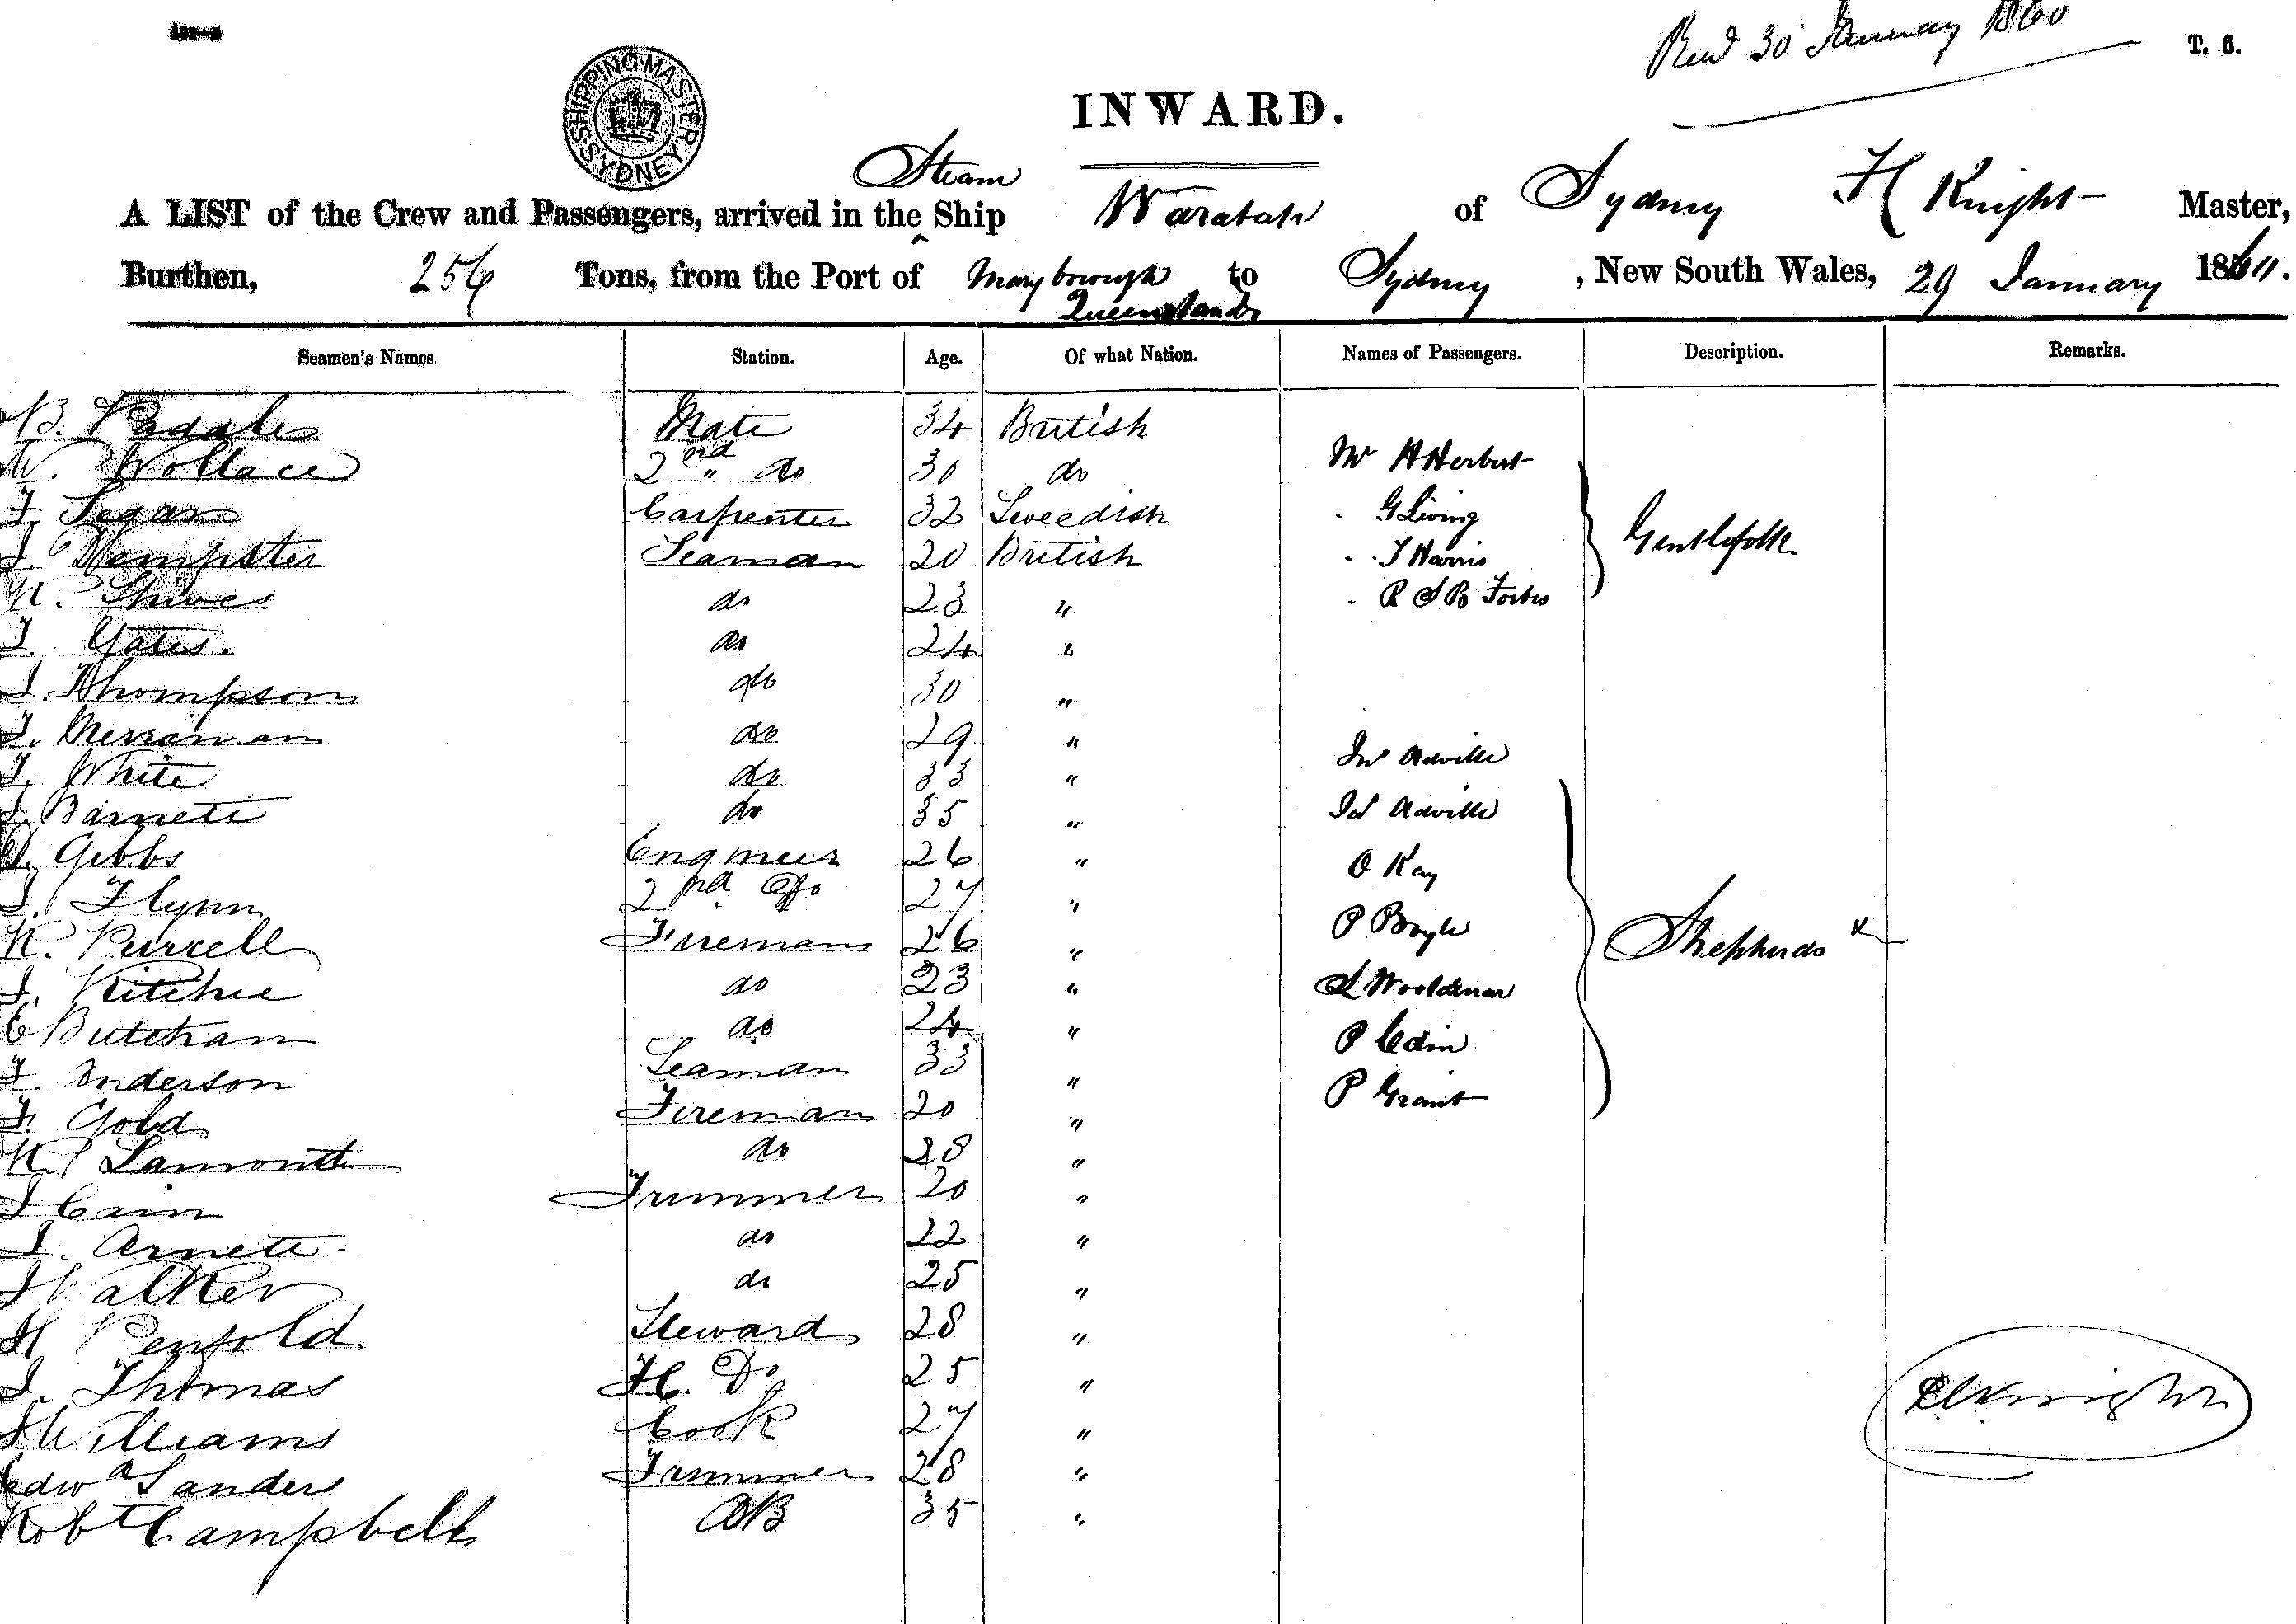 Recd 30 January 1860
T. 6.
SHIPPING MASTER SYDNEY
INWARD.
Steam
A LIST of the Crew and Passengers, arrived in the Ship Waratah of Sydney H Knight Master,
Burthen, 256 Tons, from the Port of Maryborough to Sydney, New South Wales, 29 January 1860.
Queensland
Seamen's Names. Station. Age. Of what Nation. Names of Passengers. Description. Remarks.
B. Mate 34 British
W. Wollace 2nd " do 30 do Mr H Herbert
Carpenter 32 Sweedish G Living
J. Dempster Seaman 20 British J Harris Gentlefolk
do 23 " R S B Forbes
J. Yates. do 24 "
J. Thompson do 30 "
J. Merriman do 29 "
J. White do 33 " Jno Adville
J. Barnett do 35 " Jas Adville
Gibbs Engineer 26 " O Kay
J. Flynn 2nd Do 27 "
W. Purcell Fireman 26 " P Boyle Shepherds x
J. Ritchie do 23 "
C Butcham do 24 "
J. Anderson Seaman 33 " P Grant
F. Gold Fireman 20 "
Lamont do 28 "
J Cain Trimmer 20 "
J. Arnett. do 22 "
J Walker do 25 "
H Penfold Steward 28 "
J. Thomas do 25 "
J Williams Cook 27 "
Edwd Sanders Trimmer 28 "
Robt Campbell AB 35 "
H Knight